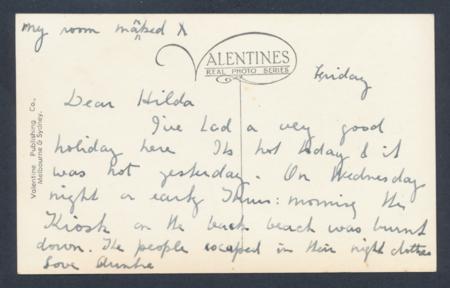 my room marked X
VALENTINES
REAL PHOTO SERIES
Friday
Dear Hilda
I've had a very good
holiday here Its hot today & it
was hot yesterday. On Wednesday
night or early Thurs: morning the
Kiosk on the back beach was burnt
down. The people escaped in their night clothes
Love Auntie
Valentine Publishing Co.,
Melbourne & Sydney.